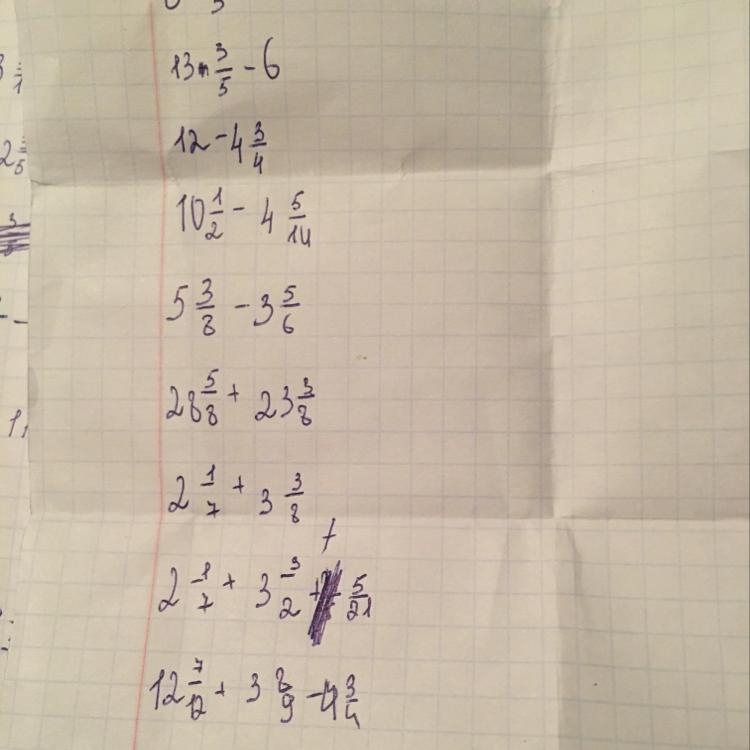 13 3/5 - 6
12 - 4 3/4
10 1/2 - 4 5/14
5 3/8 - 3 5/6
28 5/8 + 23 3/8
2 1/7 + 3 3/8
2 1/7 + 3 3/2 + 5/21
12 7/12 + 3 8/9 - 4 3/4